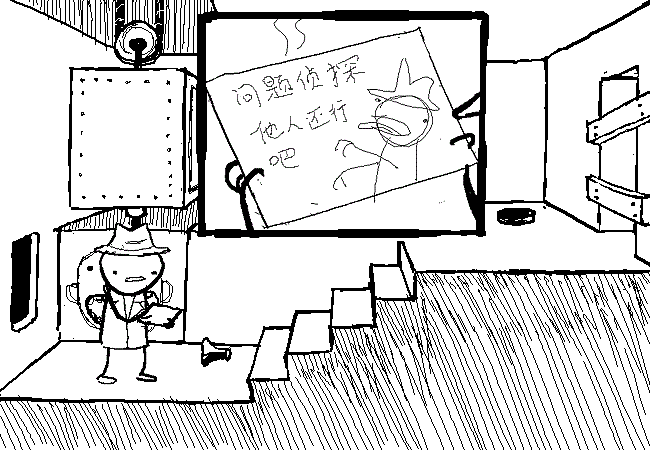 问题侦探
他人还行
吧